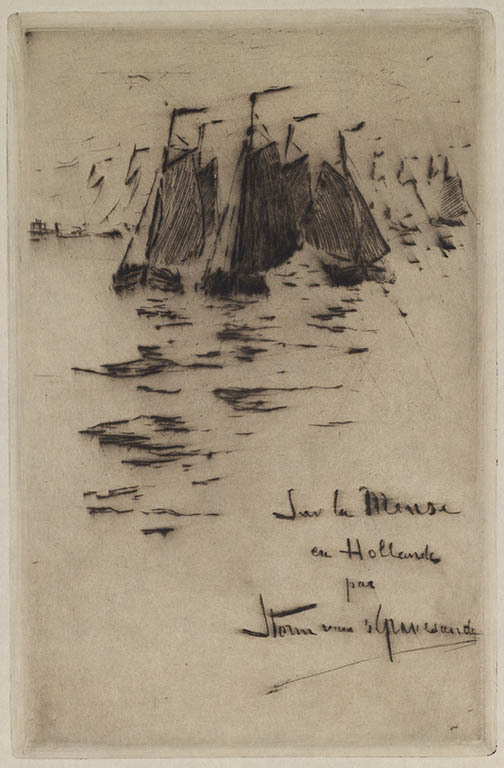 Sur la Meuse
en Hollande
par
Storm van 's Gravesande